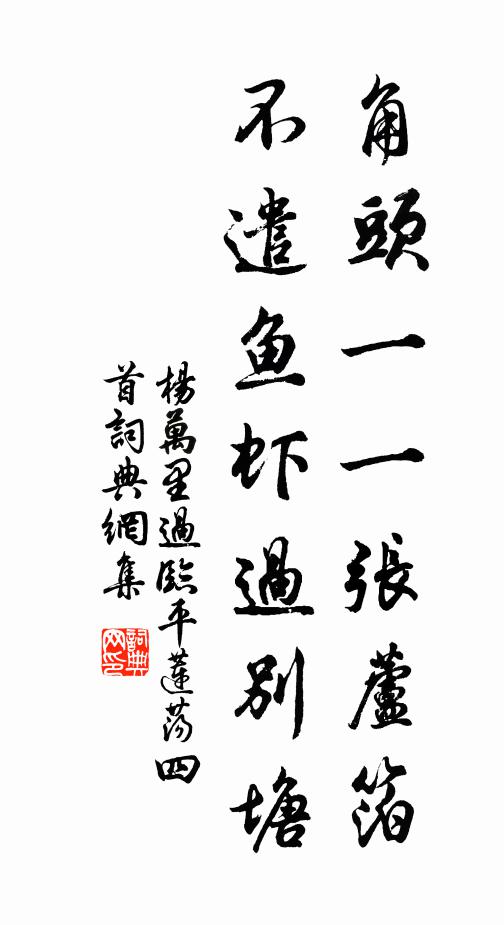 角頭一一張蘆箔
不遣鱼虾過別塘
楊萬里過臨平蓮蕩四
首詞典網集
詞典网印